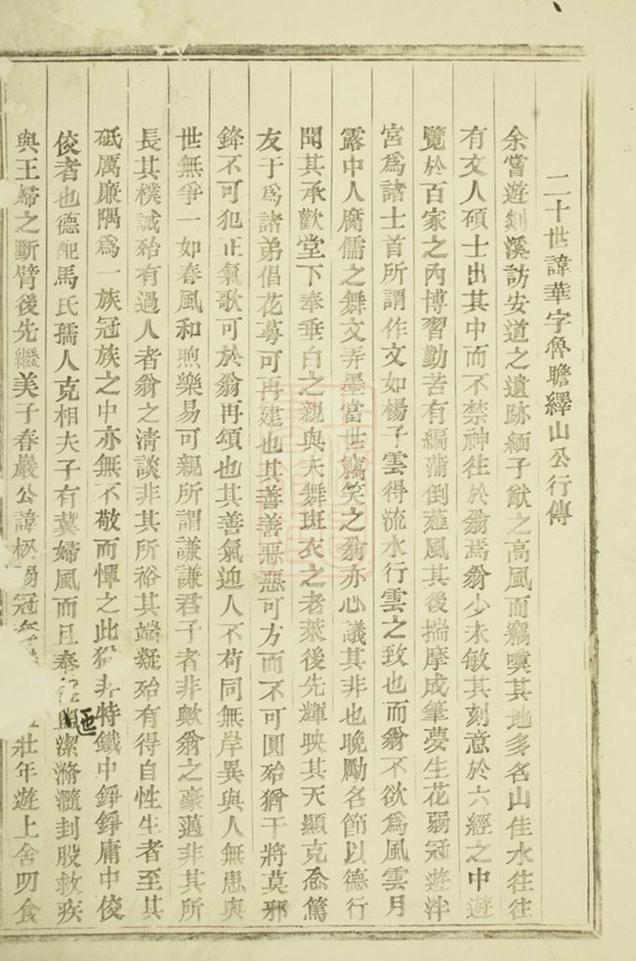 二十世諱華字魯瞻繹山公行傳
余嘗遊剡溪訪安道之遺跡緬子猷之高風而竊冀其地多名山佳水往往
有文人碩士出其中而不禁神往於翁焉翁少末敏其刻意於六經之中遊
覽於百家之內博習勤苦有編蒲倒薤風其後揣摩成筆夢生花弱冠遊泮
宮爲諸士首所謂作文如楊子雲得流水行雲之致也而翁不欲爲風雲月
露中人腐儒之舞文弄墨當世竊笑之翁亦心議其非也晚勵名節以德行
聞其承歡堂下奉垂白之親與夫舞斑衣之老萊後先輝映其天顯克念篤
友于爲諸弟倡花萼可再建也其善善惡惡可方而不可圓殆猶干將莫邪
鋒不可犯正氣歌可於翁再頌也其善氣迎人不苟同無岸異與人無患與
世無爭一如春風和煦樂易可親所謂謙謙君子者非歟翁之豪邁非其所
長其樸誠殆有過人者翁之淸談非其所裕其端凝殆有得自性生者至其
砥厲廉隅爲一族冠族之中亦無不敬而憚之此猶非特鐵中錚錚庸中佼
佼者也德配馬氏孺人克相夫子有冀婦風而且奉匜盥潔滫瀡封股救疾
與王婦之斷臂後先繼美子春嚴公諱楊冠壯年遊上舍明食